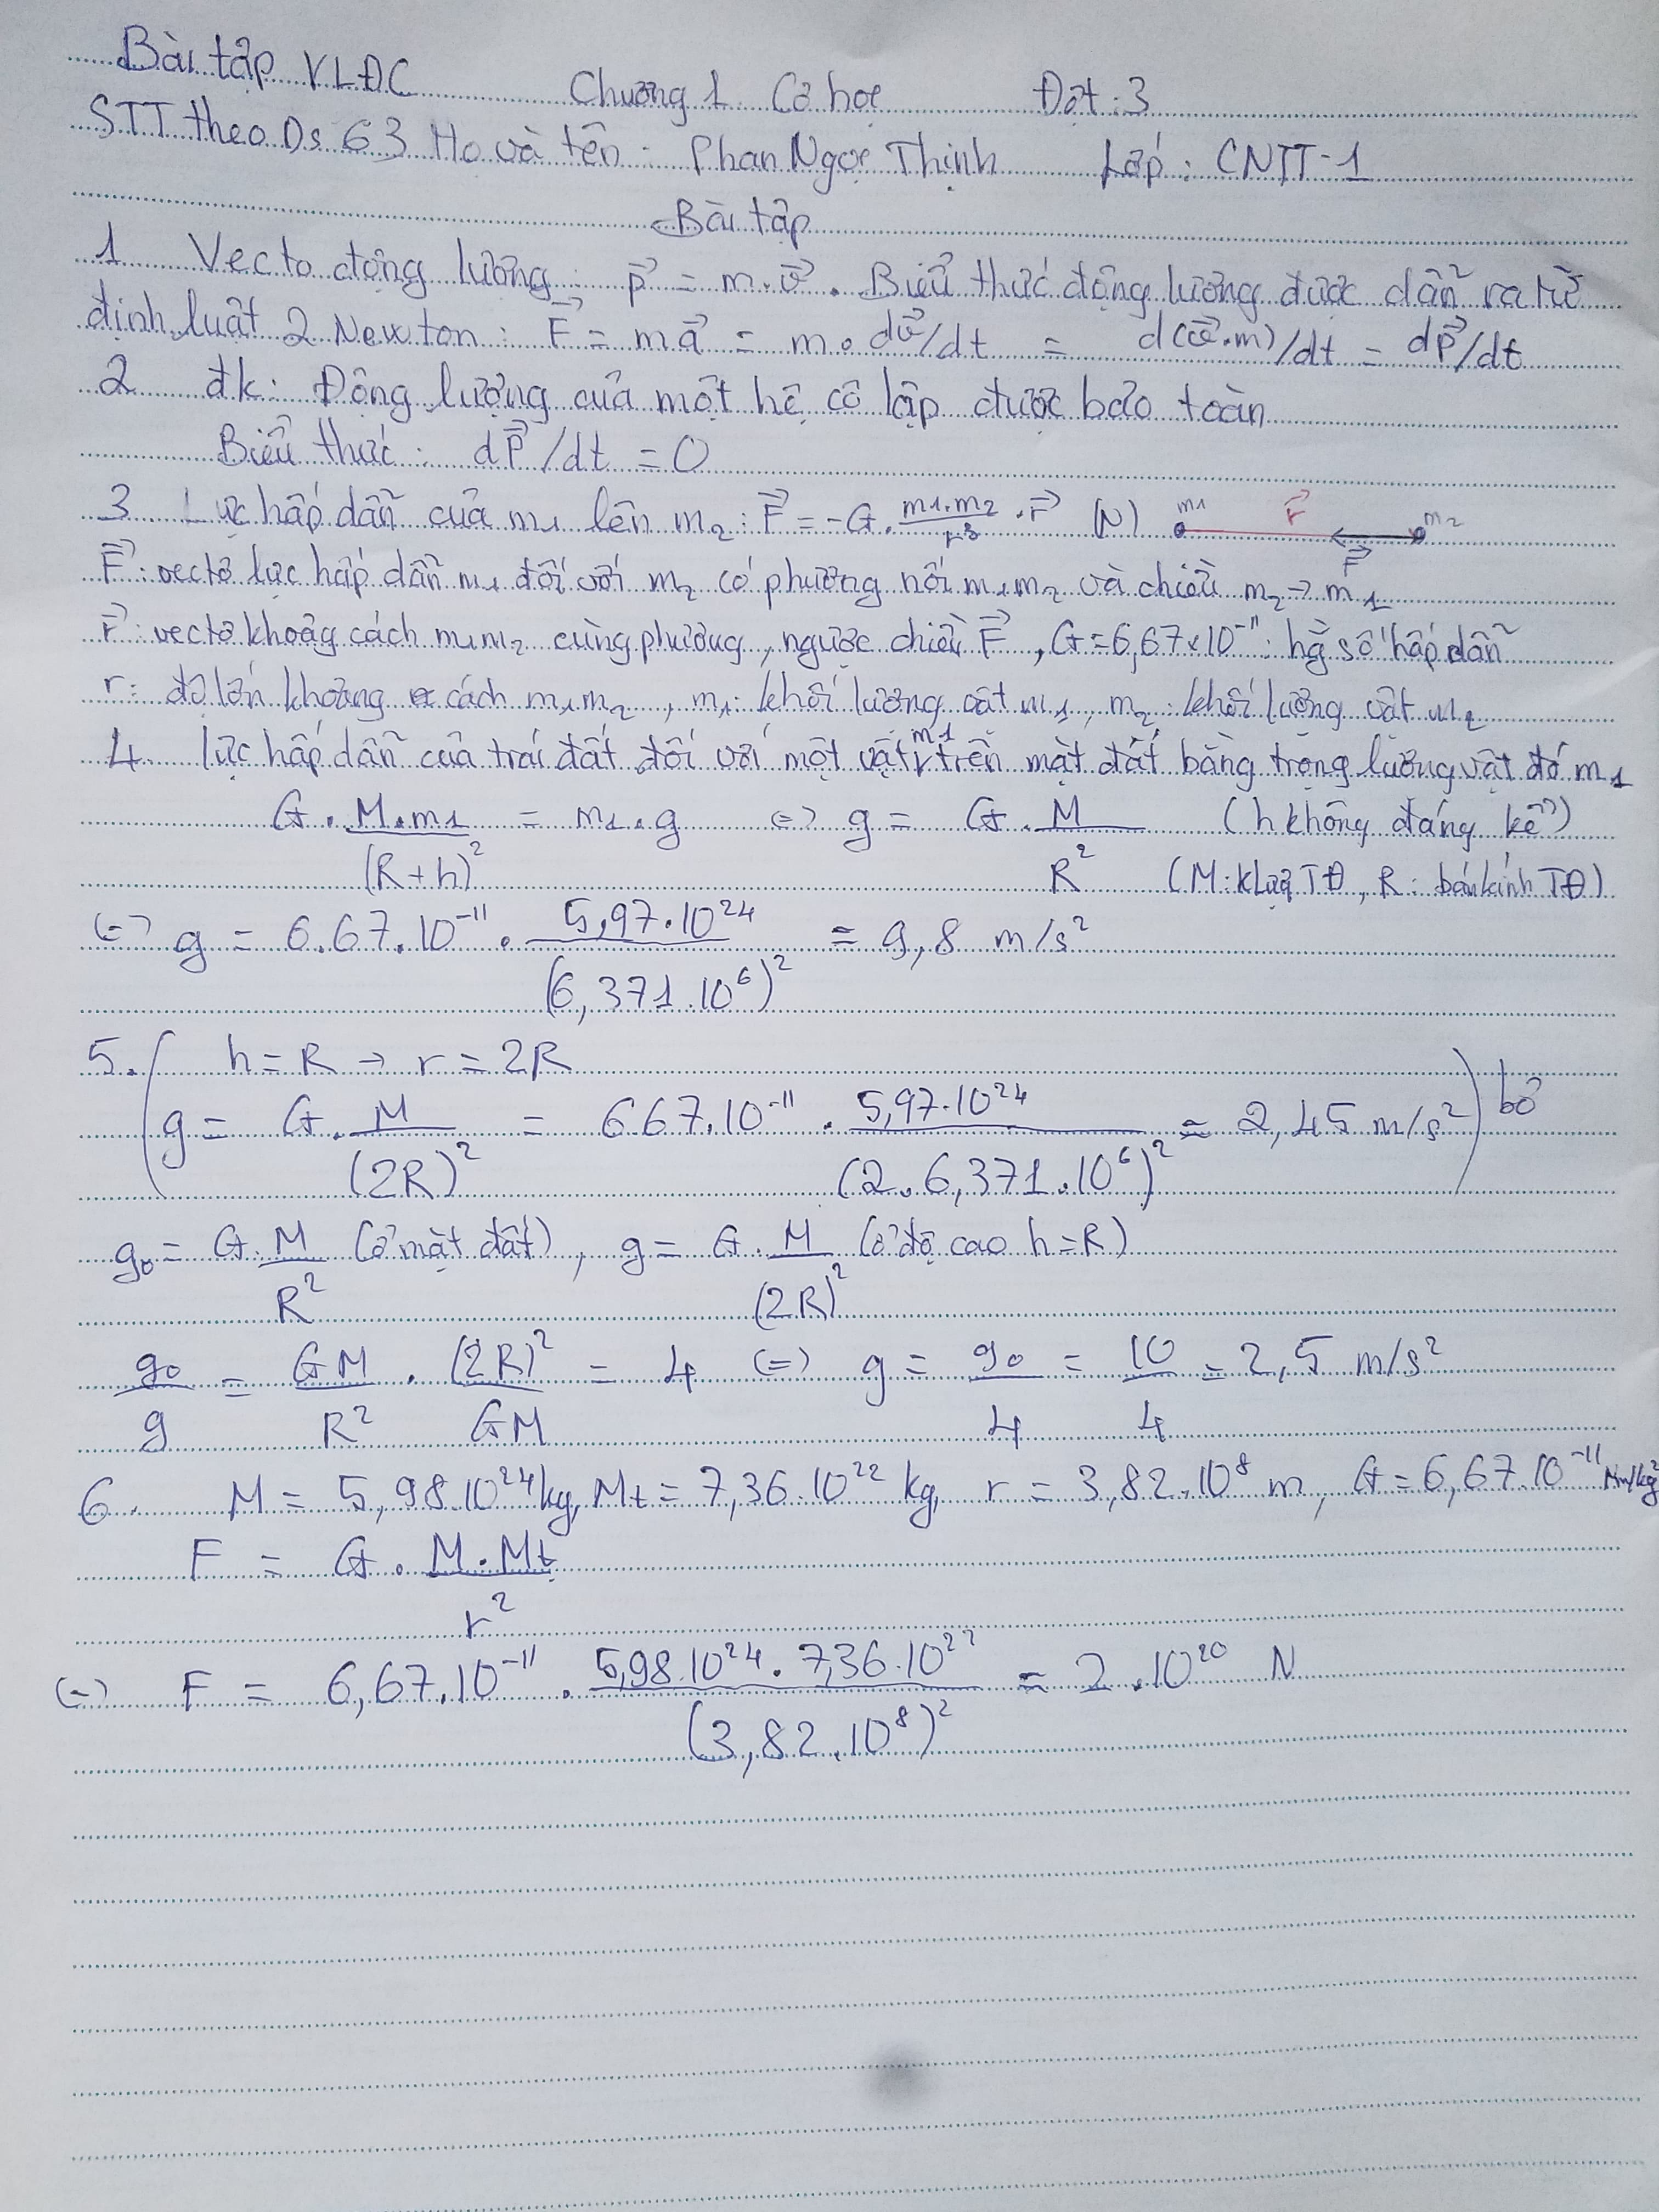 Bài tập VLĐC Chương 1 Cơ học Đợt: 3
STT theo Ds 63 Họ và tên: Phan Ngọc Thịnh Lớp: CNTT-1
Bài tập
1 Vectơ động lượng: p⃗ = m.v⃗. Biểu thức động lượng được dẫn ra từ
định luật 2 Newton: F⃗ = ma⃗ = m.dv⃗/dt = d(v⃗.m)/dt = dp⃗/dt
2 đk: Động lượng của một hệ cô lập được bảo toàn
Biểu thức: dP⃗/dt = 0
3 Lực hấp dẫn của m1 lên m2: F⃗ = -G. m1.m2/r³ .r⃗ (N) m1 r⃗ F⃗ m2
F⃗: vectơ lực hấp dẫn m1 đối với m2 có phương nối m1m2 và chiều m2 → m1
r⃗: vectơ khoảg cách m1m2 cùng phương, ngược chiều F⃗, G = 6,67x10⁻¹¹: hằg số hấp dẫn
r: độ lớn khoảng cách m1m2, m1: khối lượng vật m1, m2: khối lượng vật m2
4. lực hấp dẫn của trái đất đối với một vật m1 trên mặt đất bằng trọng lượng vật đó m1
G. M.m1/(R+h)² = m1.g <=> g = G. M/R² (h không đáng kể)
(M: klượg TĐ, R: bán kính TĐ)
<=> g = 6.67.10⁻¹¹. 5,97.10²⁴/(6,371.10⁶)² = 9,8 m/s²
5. ( h = R → r = 2R
g = G. M/(2R)² = 667.10⁻¹¹. 5,97.10²⁴/(2.6,371.10⁶)² = 2,45 m/s² ) bỏ
g₀ = G. M/R² (ở mặt đất), g = G. M/(2R)² (ở độ cao h = R)
g₀/g = GM/R² . (2R)²/GM = 4 <=> g = g₀/4 = 10/4 = 2,5 m/s²
6. M = 5,98.10²⁴kg, Mt = 7,36.10²² kg, r = 3,82.10⁸ m, G = 6,67.10⁻¹¹ Nm/kg²
F = G. M.Mt/r²
<=> F = 6,67.10⁻¹¹. 5,98.10²⁴.7,36.10²²/(3,82.10⁸)² = 2.10²⁰ N